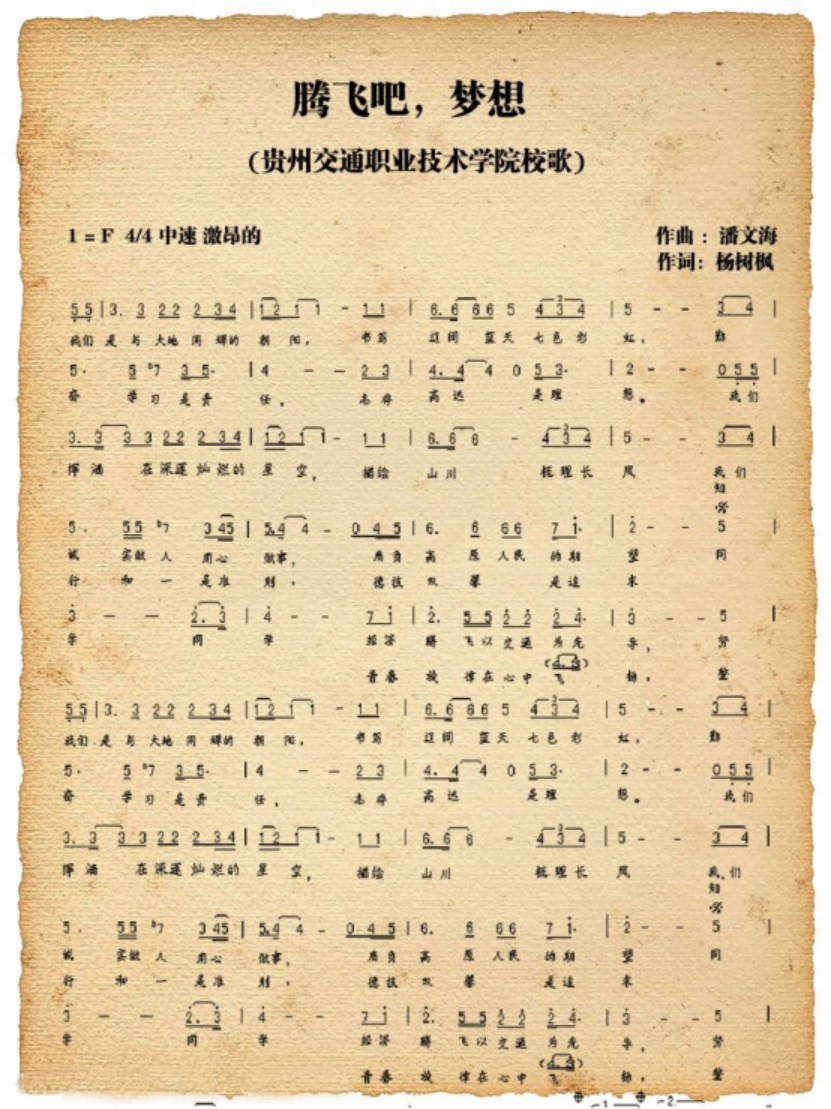 腾飞吧，梦想
(贵州交通职业技术学院校歌)
1 = F 4/4 中速 激昂的
作曲：潘文海
作词：杨树枫
5 5 | 3. 3 2 2 2 3 4 | 1 2 1 1 - 1 1 | 6. 6 6 6 5 4 3 4 | 5 - - 3 4 |
我们 是 与 大地 同 辉的 朝 阳， 书写 辽阔 蓝天 七色 彩 虹， 勤
5· 5 ♭7 3 5· | 4 - - 2 3 | 4. 4 4 0 5 3· | 2 - - 0 5 5 |
奋 学 习 是 责 任， 志存 高远 是 理 想。 我们
3. 3 3 3 2 2 2 3 4 | 1 2 1 1 - 1 1 | 6. 6 6 - 4 3 4 | 5 - - 3 4 |
挥洒 在 深邃 灿烂的 星 空， 描绘 山川 梳理 长 风 我们
知
5· 5 5 ♭7 3 4 5 | 5. 4 4 - 0 4 5 | 6. 6 6 6 7 1· | 2 - - 5 |
诚 实做 人 用心 做事， 肩负 高 原 人民 的期 望 同
行 和 一 是准 则， 德技 双 馨 是追 求
3 - - 2. 3 | 4 - - 7 1 | 2. 5 5 2 2 2 4. | 3 - - 5 |
学 同 学 经济 腾 飞以 交通 为先 导， 努
青春 绽 放在 心中 飞 扬，
5 5 | 3. 3 2 2 2 3 4 | 1 2 1 1 - 1 1 | 6. 6 6 6 5 4 3 4 | 5 - - 3 4 |
我们 是 与 大地 同 辉的 朝 阳， 书写 辽阔 蓝天 七色 彩 虹， 勤
5· 5 ♭7 3 5· | 4 - - 2 3 | 4. 4 4 0 5 3· | 2 - - 0 5 5 |
奋 学 习 是 责 任， 志存 高远 是 理 想。 我们
3. 3 3 3 2 2 2 3 4 | 1 2 1 1 - 1 1 | 6. 6 6 - 4 3 4 | 5 - - 3 4 |
挥洒 在 深邃 灿烂的 星 空， 描绘 山川 梳理 长 风 我们
知
5. 5 5 ♭7 3 4 5 | 5. 4 4 - 0 4 5 | 6. 6 6 6 7 1· | 2 - - 5 |
诚 实做 人 用心 做事， 肩负 高 原 人民 的期 望 同
行 和 一 是准 则， 德技 双 馨 是追 求
3 - - 2. 3 | 4 - - 7 1 | 2. 5 5 2 2 2 4. | 3 - - 5 |
学 同 学 经济 腾 飞以 交通 为先 导， 努
青春 绽 放在 心中 飞 扬，